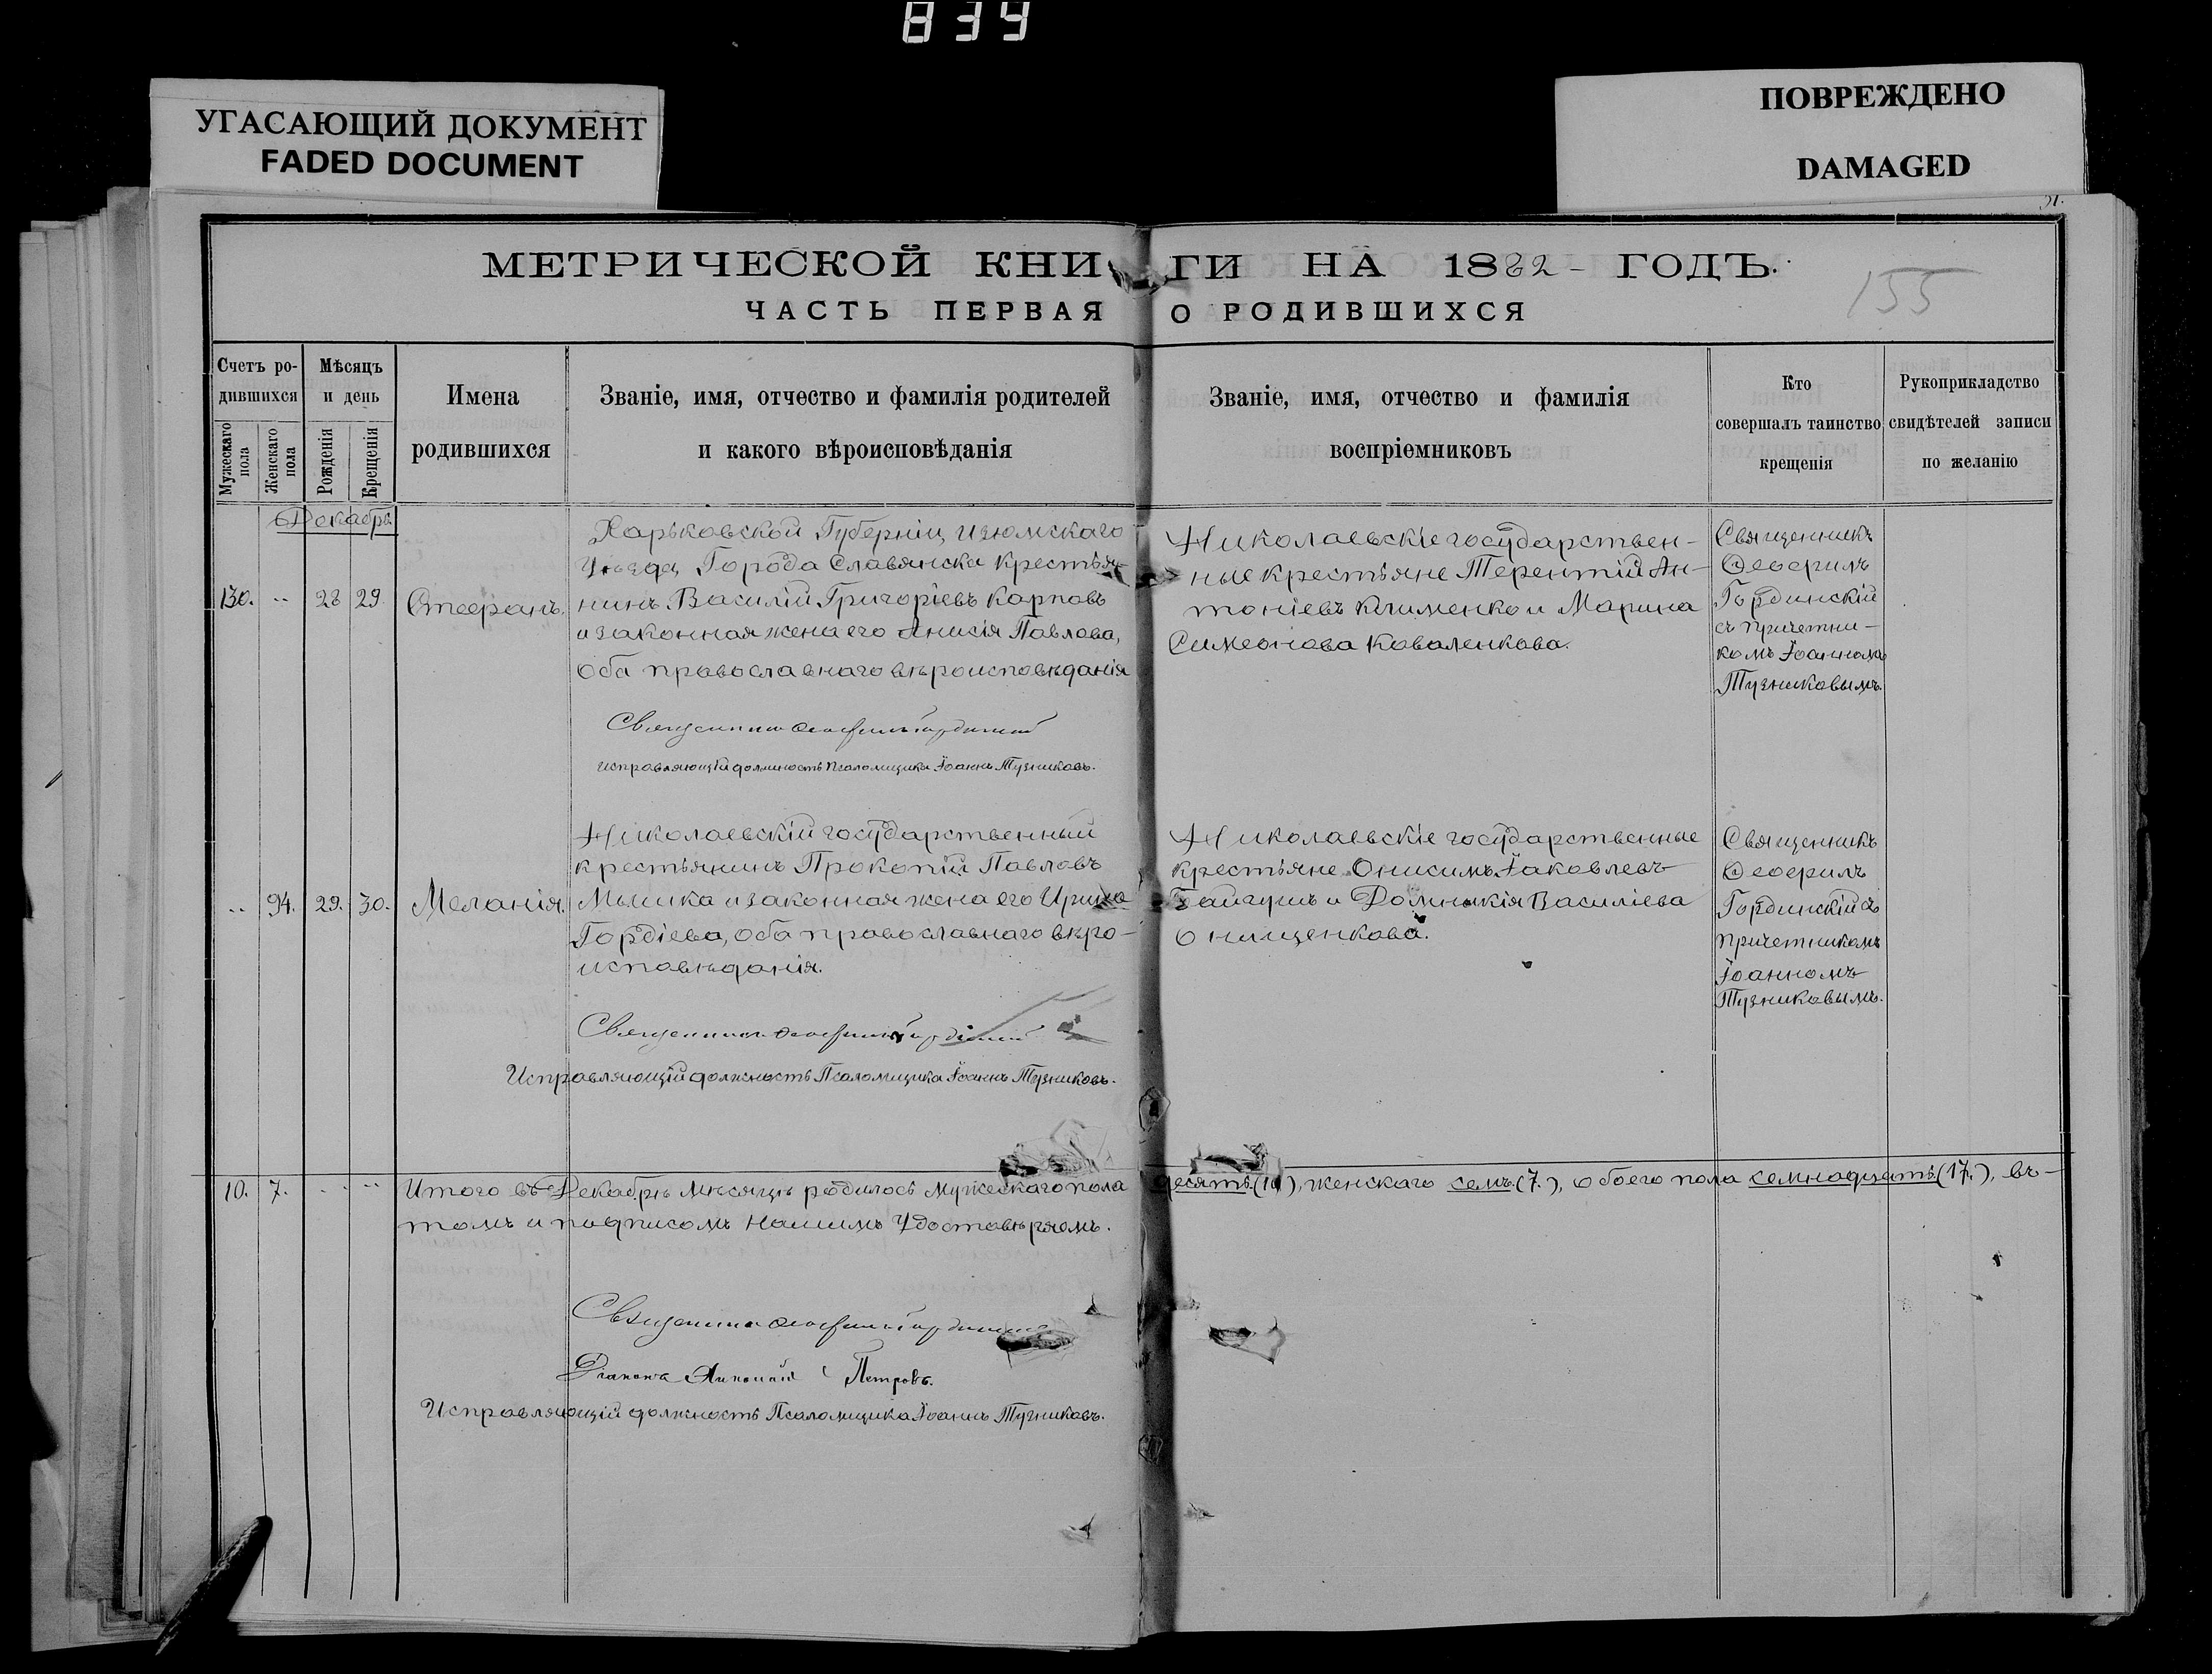 839
УГАСАЮЩИЙ ДОКУМЕНТ
FADED DOCUMENT
ПОВРЕЖДЕНО
DAMAGED
МЕТРИЧЕСКОЙ КНИГИ НА 1882 ГОДЪ.
155
ЧАСТЬ ПЕРВАЯ О РОДИВШИХСЯ
Счетъ ро-
дившихся
Мужескаго пола
Женскаго пола
Мѣсяцъ
и день
Рожденія
Крещенія
Имена
родившихся
Званіе, имя, отчество и фамилія родителей
и какого вѣроисповѣданія
Званіе, имя, отчество и фамилія
воспріемниковъ
Кто
совершалъ таинство
крещенія
Рукоприкладство
свидѣтелей записи
по желанію
Декабрь.
130. 28 29. Стефанъ.
Харьковской Губерніи, Изюмскаго
Уѣзда, Города Славянска крестья-
нинъ Василій Григоріевъ Карповъ
и законная жена его Анисія Павлова,
оба православнаго вѣроисповѣданія
Николаевскіе государствен-
ные крестьяне Терентій Ан-
тоніевъ Клименко и Марина
Симеонова Коваленкова.
Священникъ
Ѳеофилъ
Гординскій
съ причетни-
комъ Іоанномъ
Тузниковымъ.
Священникъ Ѳеофилъ Гординскій
Исправляющій должность Псаломщика Іоаннъ Тузниковъ.
94. 29. 30. Меланія.
Николаевскій государственный
крестьянинъ Прокопій Павловъ
Мышка и законная жена его Ирина
Гордіева, оба православнаго вѣро-
исповѣданія.
Николаевскіе государственные
крестьяне Онисимъ Іаковлевъ
Байгушъ и Домникія Василіева
Онищенкова.
Священникъ
Ѳеофилъ
Гординскій съ
причетникомъ
Іоанномъ
Тузниковымъ.
Священникъ Ѳеофилъ Гординскій
Исправляющій должность Псаломщика Іоаннъ Тузниковъ.
10. 7. Итого въ Декабрѣ мѣсяцѣ родилось мужескаго пола десять (10), женскаго семь (7.), обоего пола семнадцать (17.), въ-
томъ и подписомъ нашимъ удостовѣряемъ.
Священникъ Ѳеофилъ Гординскій
Діаконъ Петровъ.
Исправляющій должность Псаломщика Іоаннъ Тузниковъ.